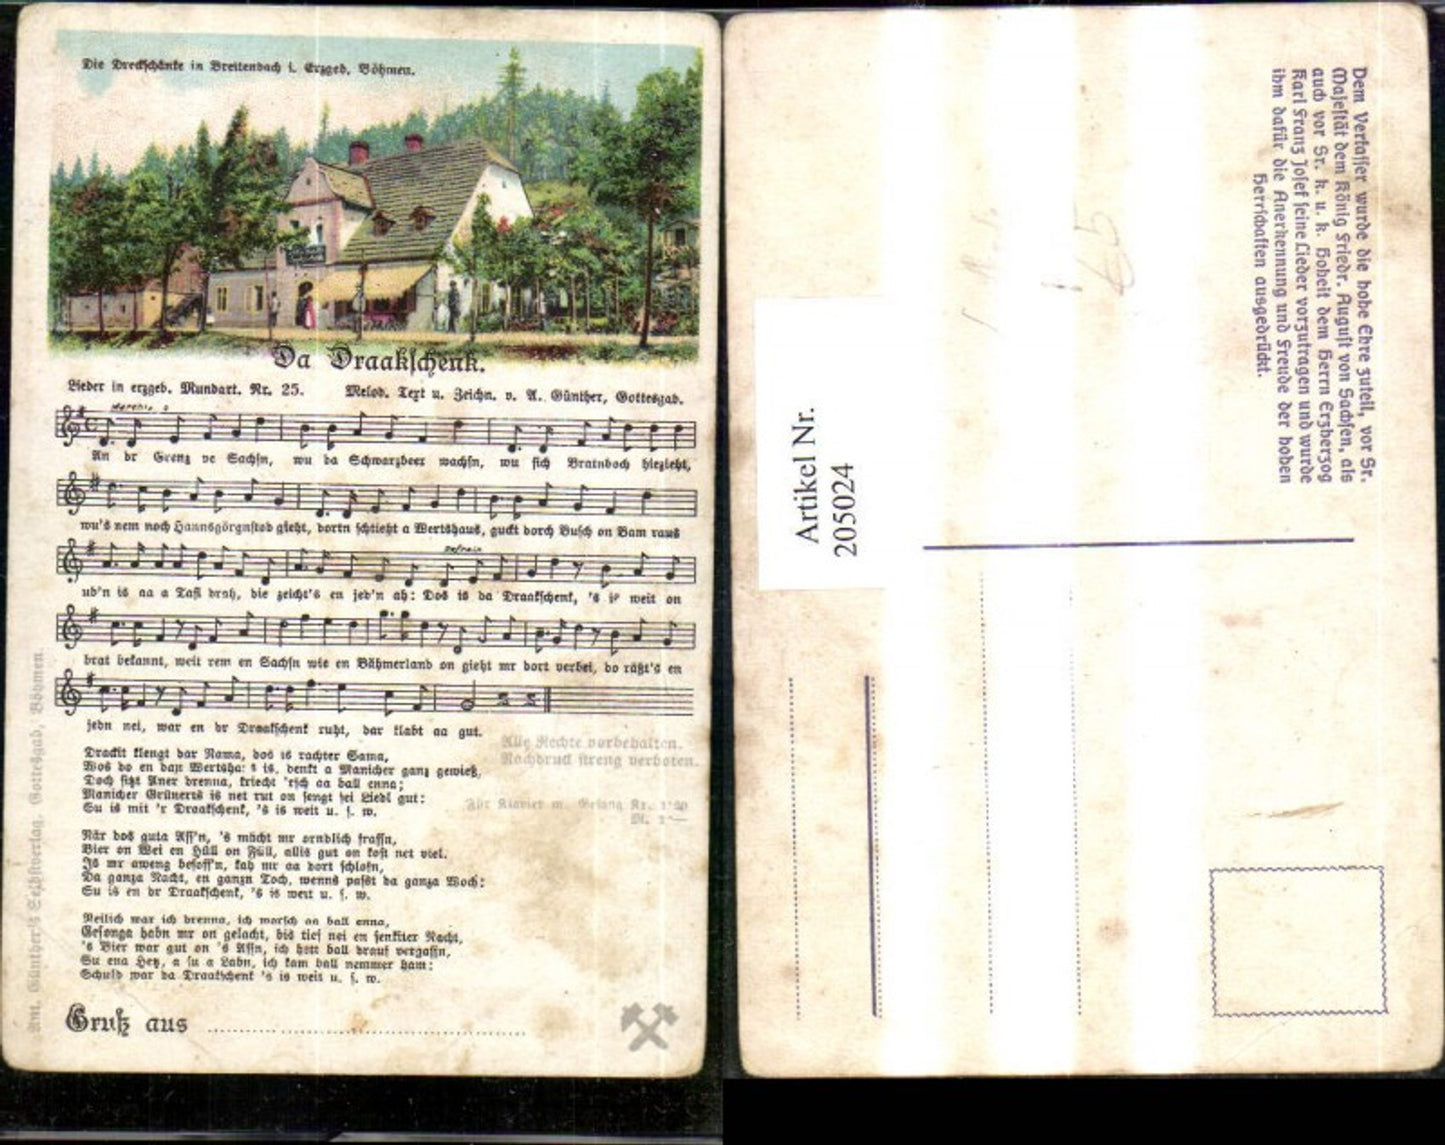 Die Dreckschänke in Breitenbach i. Erzgeb. Böhmen.
Da Draakschenk.
Lieder in erzgeb. Mundart. Nr. 25. Melod. Text u. Zeichn. v. A. Günther, Gottesgab.
An dr Grenz ve Sachsn, wu da Schwarzbeer wachsn, wu sich Bratnboch hiezieht,
wu's nem noch Hannsgörgnstod gieht, dortn schtieht a Wertshaus, guckt dorch Busch on Bam raus
ub'n is aa a Tafl droh, die zeicht's en jed'n ah: Dos is da Draakschenk, 's is weit on
brat bekannt, weit rem en Sachsn wie en Bähmerland on gieht mr dort verbei, do räßt's en
jedn nei, war en dr Draakschenk ruht, dar klabt aa gut.
Alle Rechte vorbehalten.
Nachdruck streng verboten.
Für Klavier m. Gesang Kr. 1·20
Drackit klengt dar Nama, dos is rachter Sama,
Wos do en dan Wertsha: s is, denkt a Manicher ganz gewieß,
Doch sitzt Aner drenna, kriecht 'rsch aa ball enna;
Manicher Grünerts is net rut on sengt sei Liedl gut:
Su is mit 'r Draakschenk, 's is weit u. s. w.
När dos guta Ass'n, 's mächt mr orndlich frassn,
Bier on Wei en Hüll on Füll, alles gut on kost net viel.
Is mr aweng besoff'n, kah mr aa dort schlofn,
Da ganza Nacht, en ganzn Toch, wenns paßt da ganza Woch:
Su is en dr Draakschenk, 's is weit u. s. w.
Neilich war ich drenna, ich morsch aa ball enna,
Gesonga habn mr on gelacht, bis tief nei en senkster Nacht,
's Bier war gut on 's Assn, ich hett ball drauf vergassn,
Su ena Hetz, a su a Labn, ich kam ball nemmer ham:
Schuld war da Draakschenk 's is weit u. s. w.
Gruß aus
Ant. Günther's Selbstverlag, Gottesgab, Böhmen.
Artikel Nr.
205024
Dem Verfasser wurde die hohe Ehre zuteil, vor Sr.
Majestät dem König Friedr. August von Sachsen, als
auch vor Sr. k. u. k. Hoheit dem Herrn Erzherzog
Karl Franz Josef seine Lieder vorzutragen und wurde
ihm dafür die Anerkennung und Freude der hohen
Herrschaften ausgedrückt.